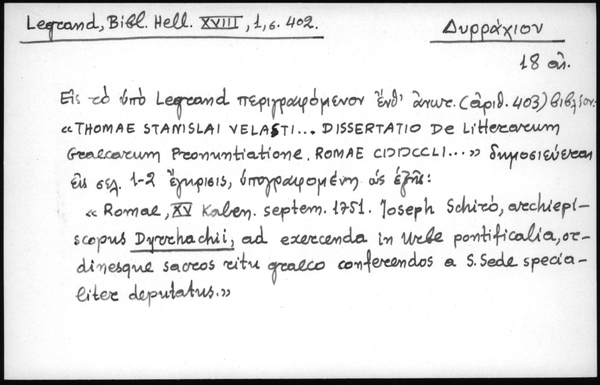 Legrand, Bibl. Hell. XVIII, 1, σ. 402.
Δυρράχιον
18 αἰ.
Εἰς τὸ ὑπὸ Legrand περιγραφόμενον ἔνθ' ἀνωτ. (ἀριθ. 403) βιβλίον·
«THOMAE STANISLAI VELASTI... DISSERTATIO De Litterarum
Graecarum Pronuntiatione. ROMAE CIƆIƆCCLI...» δημοσιεύεται
εἰς σελ. 1-2 ἔγκρισις, ὑπογραφομένη ὡς ἑξῆς:
«Romae, XV Kalen. septem. 1751. Joseph Schirò, archiepi-
scopus Dyrrhachii, ad exercenda in Urbe pontificalia, or-
dinesque sacros ritu graeco conferendos a S. Sede specia-
liter deputatus.»